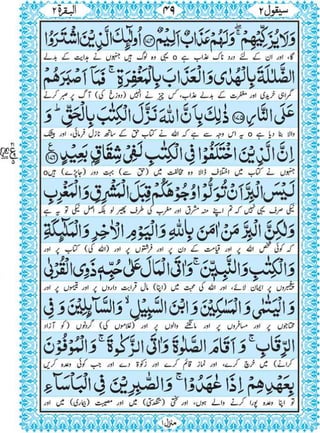 سیقول ۲ ۴۹ البقرة ۲
وَلَا يُزَكِّيْهِمْ ۚ وَلَهُمْ عَذَابٌ اَلِيْمٌ ﴿۱۷۴﴾ اُولٰٓئِكَ الَّذِيْنَ اشْتَرَوُا
گا، اور ان کے لئے درد ناک عذاب ہے ٥ یہی وہ لوگ ہیں جنہوں نے ہدایت کے بدلے
الضَّلٰلَةَ بِالْهُدٰى وَالْعَذَابَ بِالْمَغْفِرَةِ ۚ فَمَاۤ اَصْبَرَهُمْ
گمراہی خریدی اور مغفرت کے بدلے عذاب، کس چیز نے انہیں (دوزخ کی) آگ پر صبر کرنے
عَلَى النَّارِ ﴿۱۷۵﴾ ذٰلِكَ بِاَنَّ اللّٰهَ نَزَّلَ الْكِتٰبَ بِالْحَقِّ ؕ وَ
والا بنا دیا ہے ٥ یہ اس وجہ سے ہے کہ اللہ نے کتاب حق کے ساتھ نازل فرمائی، اور بیشک
اِنَّ الَّذِيْنَ اخْتَلَفُوْا فِى الْكِتٰبِ لَفِىْ شِقَاقٍۭ بَعِيْدٍ ﴿۱۷۶﴾
جنہوں نے کتاب میں اختلاف ڈالا وہ مخالفت میں (حق سے) بہت دور (جاپڑے) ہیں ٥
لَيْسَ الْبِرَّ اَنْ تُوَلُّوْا وُجُوْهَكُمْ قِبَلَ الْمَشْرِقِ وَالْمَغْرِبِ
نیکی صرف یہی نہیں کہ تم اپنے منہ مشرق اور مغرب کی طرف پھیر لو بلکہ اصل نیکی تو یہ ہے
وَلٰكِنَّ الْبِرَّ مَنْ اٰمَنَ بِاللّٰهِ وَالْيَوْمِ الْاٰخِرِ وَالْمَلٰٓئِكَةِ
کہ کوئی شخص اللہ پر اور قیامت کے دن پر اور فرشتوں پر اور (اللہ کی) کتاب پر اور
وَالْكِتٰبِ وَالنَّبِيّٖنَ ۚ وَاٰتَى الْمَالَ عَلٰى حُبِّهٖ ذَوِى الْقُرْبٰى
پیغمبروں پر ایمان لائے، اور اللہ کی محبت میں (اپنا) مال قرابت داروں پر اور یتیموں پر اور
وَالْيَتٰمٰى وَالْمَسٰكِيْنَ وَابْنَ السَّبِيْلِ ۙ وَالسَّآئِلِيْنَ وَفِى
محتاجوں پر اور مسافروں پر اور مانگنے والوں پر اور (غلاموں کی) گردنوں (کو آزاد
الرِّقَابِ ۚ وَاَقَامَ الصَّلٰوةَ وَاٰتَى الزَّكٰوةَ ۚ وَالْمُوْفُوْنَ
کرانے) میں خرچ کرے، اور نماز قائم کرے اور زکوٰۃ دے اور جب کوئی وعدہ کریں
بِعَهْدِهِمْ اِذَا عٰهَدُوْا ۚ وَالصّٰبِرِيْنَ فِى الْبَاْسَآءِ
تو اپنا وعدہ پورا کرنے والے ہوں، اور سختی (تنگدستی) میں اور مصیبت (بیماری) میں اور
منزل ۱